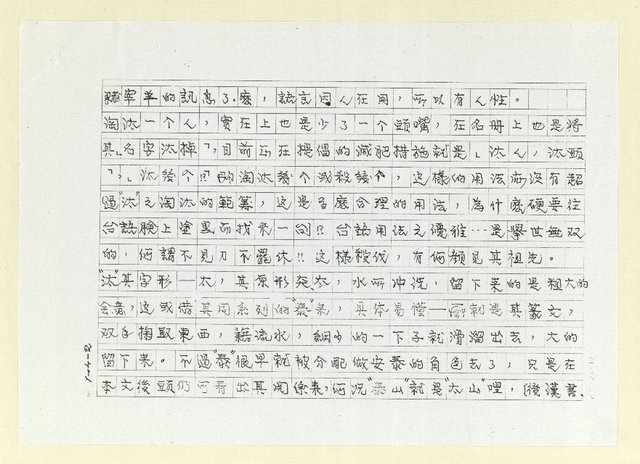 豬宰羊的訊息了麼，語言因人在用，所以有人性。
淘汰一个人，實在上也是少了一个頭嘴，在名冊上也是將
其名字汰掉，目前正在提倡的減肥措施就是「汰人，汰頭
」，汰幾个？淘汰幾个或殺幾个，這樣的用法亦沒有超
過"汰"之淘汰的範籌，這是多麼合理的用法，為什麼硬要往
台語臉上塗黑而找來一句⁉台語用法之優雅…是舉世無双
的，何謂不見刀不罷休‼這樣殺伐，有何顏見其祖先。
"汰"其字形一太，其原形癸、太，水所沖洗，留下來的是粗大的
會意，這或借其同系列的"泰"來，具体易懂一些就是其篆文，
双手掬取東西，藉流水，細小的一下子就滑溜出去，大的
留下來。不過"泰"很早就被分配做安泰的角色去了，只是在
本文後頭仍可尋出其淘係來，何況"泰山"就是"太山"哩，（後漢書、